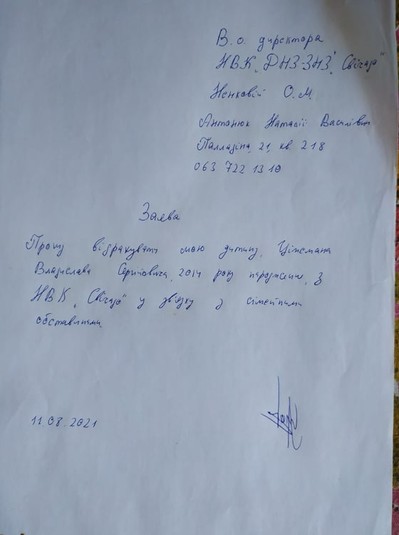 В. о. директора
НВК „ДНЗ-ЗНЗ", „Світоч"
Ненковій О.М
Антонюк Наталії Василівни
Палладіна, 21, кв 218
063 722 13 10
Заява
Прошу відрахувати мою дитину,
Владислава Сергійовича, 2014 року народження, з
НВК „Світоч" у звязку з сімейними
обставинами.
11.08.2021